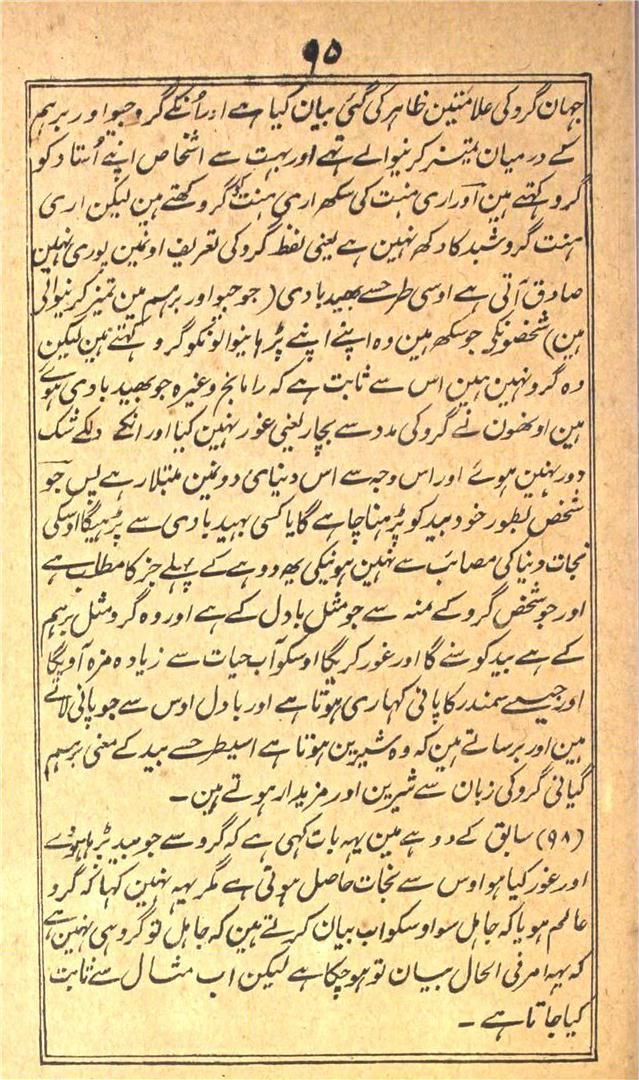 ۹۵
جہان گرو کی علامتین ظاہر کی گئی بیان کیا ہے اور اُنکے گرو جیو اور برہم
کے درمیان تمیز کرنیوالے تہے اور بہت سے اشخاص اپنے اُستاد کو
گرو کہتے ہین اور اری ہنت کی سکھ اری ہنت کو گرو کہتے ہین لیکن اری
ہنت گرو شبد کا دکھہ نہین ہے یعنی لفظ گرو کی تعریف اونمین پوری نہین
صادق آتی ہے اوسی طرحسے بھید بادی (جو جیو اور برہم مین تمیز کرنیوالی
ہین) شخصونکی جو سکھ ہین وہ اپنے اپنے پڑہانیوالونکو گرو کہتے ہین لیکن
وہ گرو نہین ہین اس سے ثابت ہے کہ رامانج وغیرہ جو بھید بادی ہوئے
ہین اونھون نے گرو کی مدد سے بچار یعنی غور نہین کیا اور انکے دلکے شک
دور نہین ہوئے اور اس وجہ سے اس دنیای دونمین مبتلا رہے پس جو
شخص بطور خود بید کو پڑہنا چاہے گا یا کسی بہید بادی سے پڑہیگا اوسکی
نجات دنیا کی مصائب سے نہین ہونیکی یھ دوہے کے پہلے جز کا مطلب ہے
اور جو شخص گرو کے منہ سے جو مثل بادل کے ہے اور وہ گرو مثل برہم
کے ہے بید کو سنے گا اور غور کریگا اوسکو آب حیات سے زیادہ مزہ آویگا
اور جیسے سمندر کا پانی کہاری ہوتا ہے اور بادل اوس سے جو پانی لاتے
ہین اور برساتے ہین کہ وہ شیرین ہوتا ہے اسیطرحسے بید کے معنی برہم
گیانی گرو کی زبان سے شیرین اور مزیدار ہوتے ہین ۔
(۹۸) سابق کے دوہے مین یہہ بات کہی ہے کہ گرو سے جو بید پڑہا ہووے
اور غور کیا ہو اوس سے نجات حاصل ہوتی ہے مگر یہہ نہین کہا کہ گرو
عالم ہو یا کہ جاہل سو اوسکو اب بیان کرتے ہین کہ جاہل تو گرو ہی نہین ہے
کہ یہہ امر فی الحال بیان تو ہو چکا ہے لیکن اب مثال سے ثابت
کیا جاتا ہے ۔